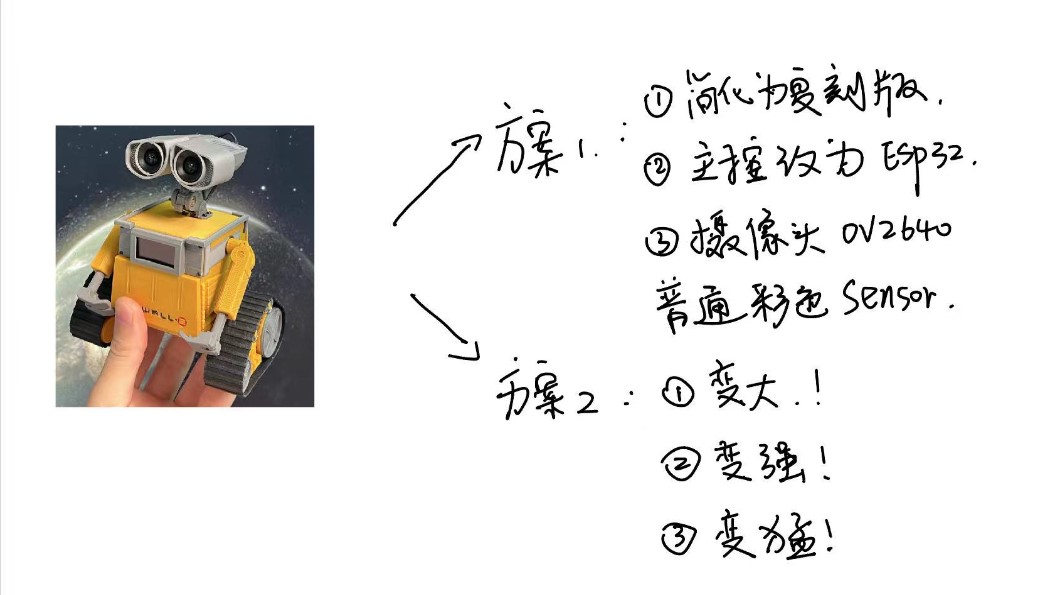 方案1.:
①简化为复刻版.
②主控改为Esp32.
③摄像头OV2640
普通彩色Sensor.
方案2:
①变大.!
②变强!
③变猛!
WALL·E